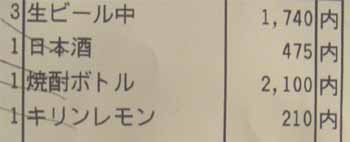 3 生ビール中 1,740 内
1 日本酒 475 内
1 焼酎ボトル 2,100 内
1 キリンレモン 210 内